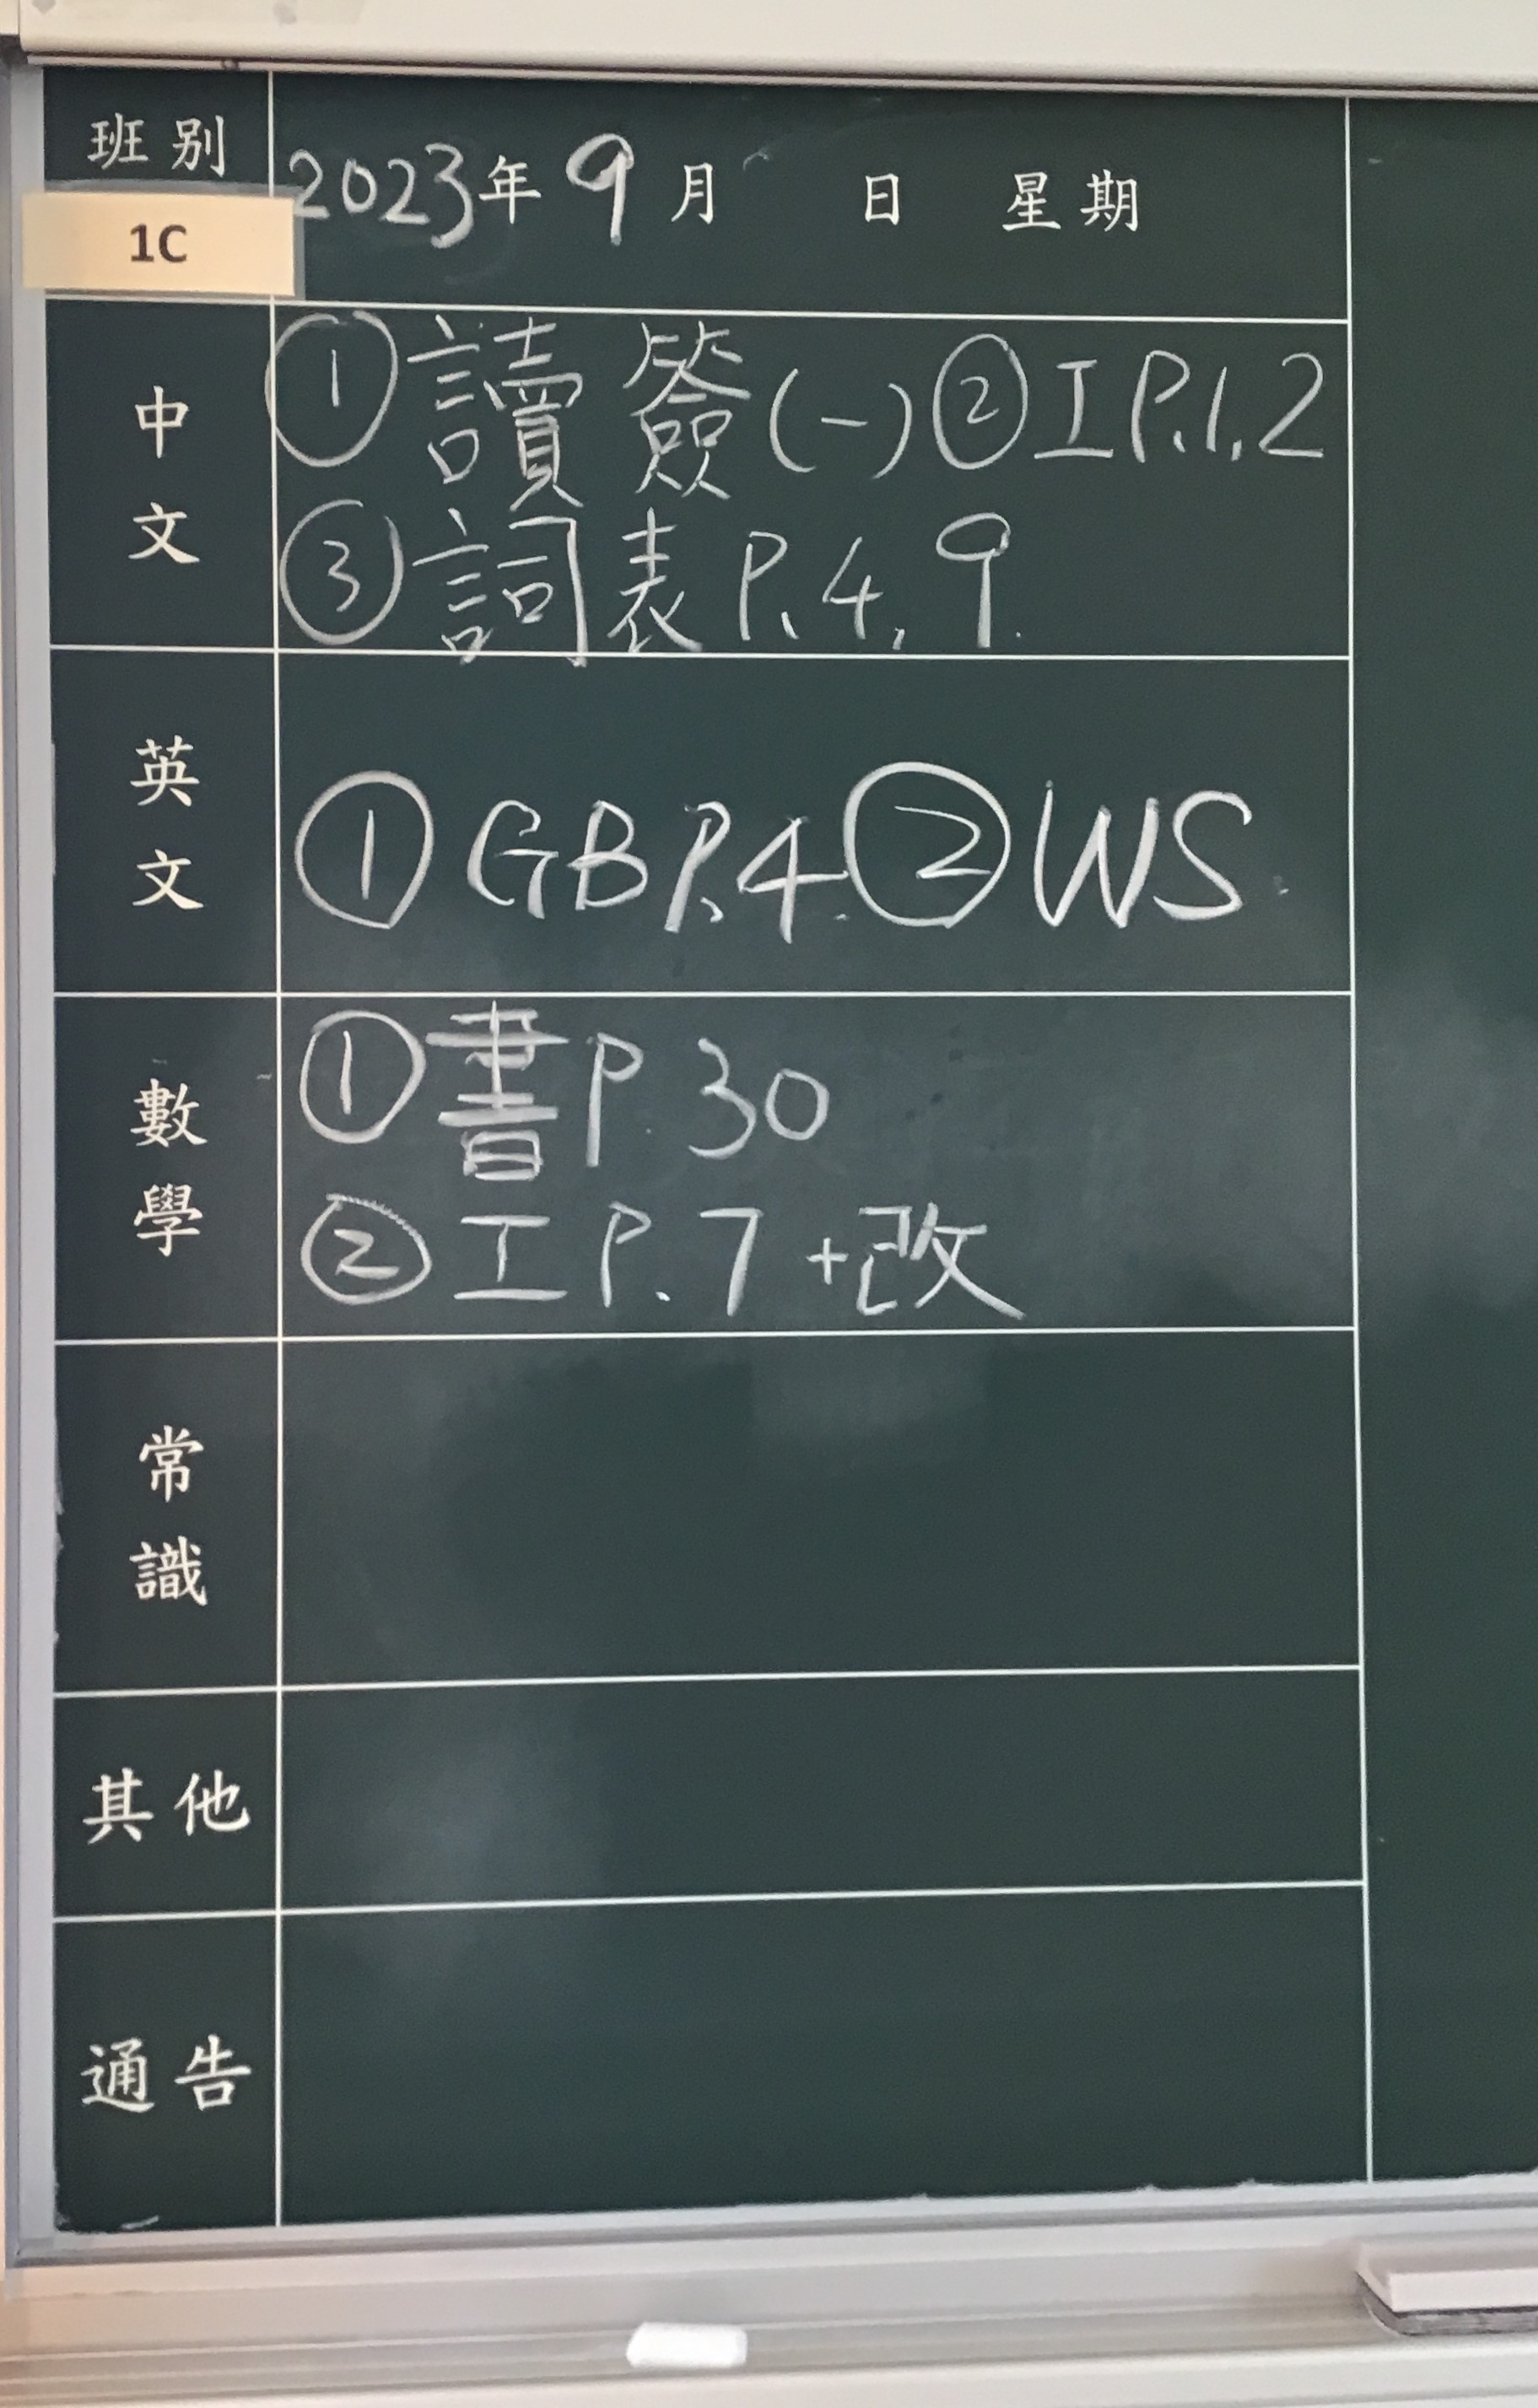 班別
1C
2023年9月 日 星期
中文
①讀簽(一)②工P.1,2
③詞表P.4,9.
英文
①GBP.4.②WS.
數學
①書P.30
②工P.7+改
常識
其他
通告